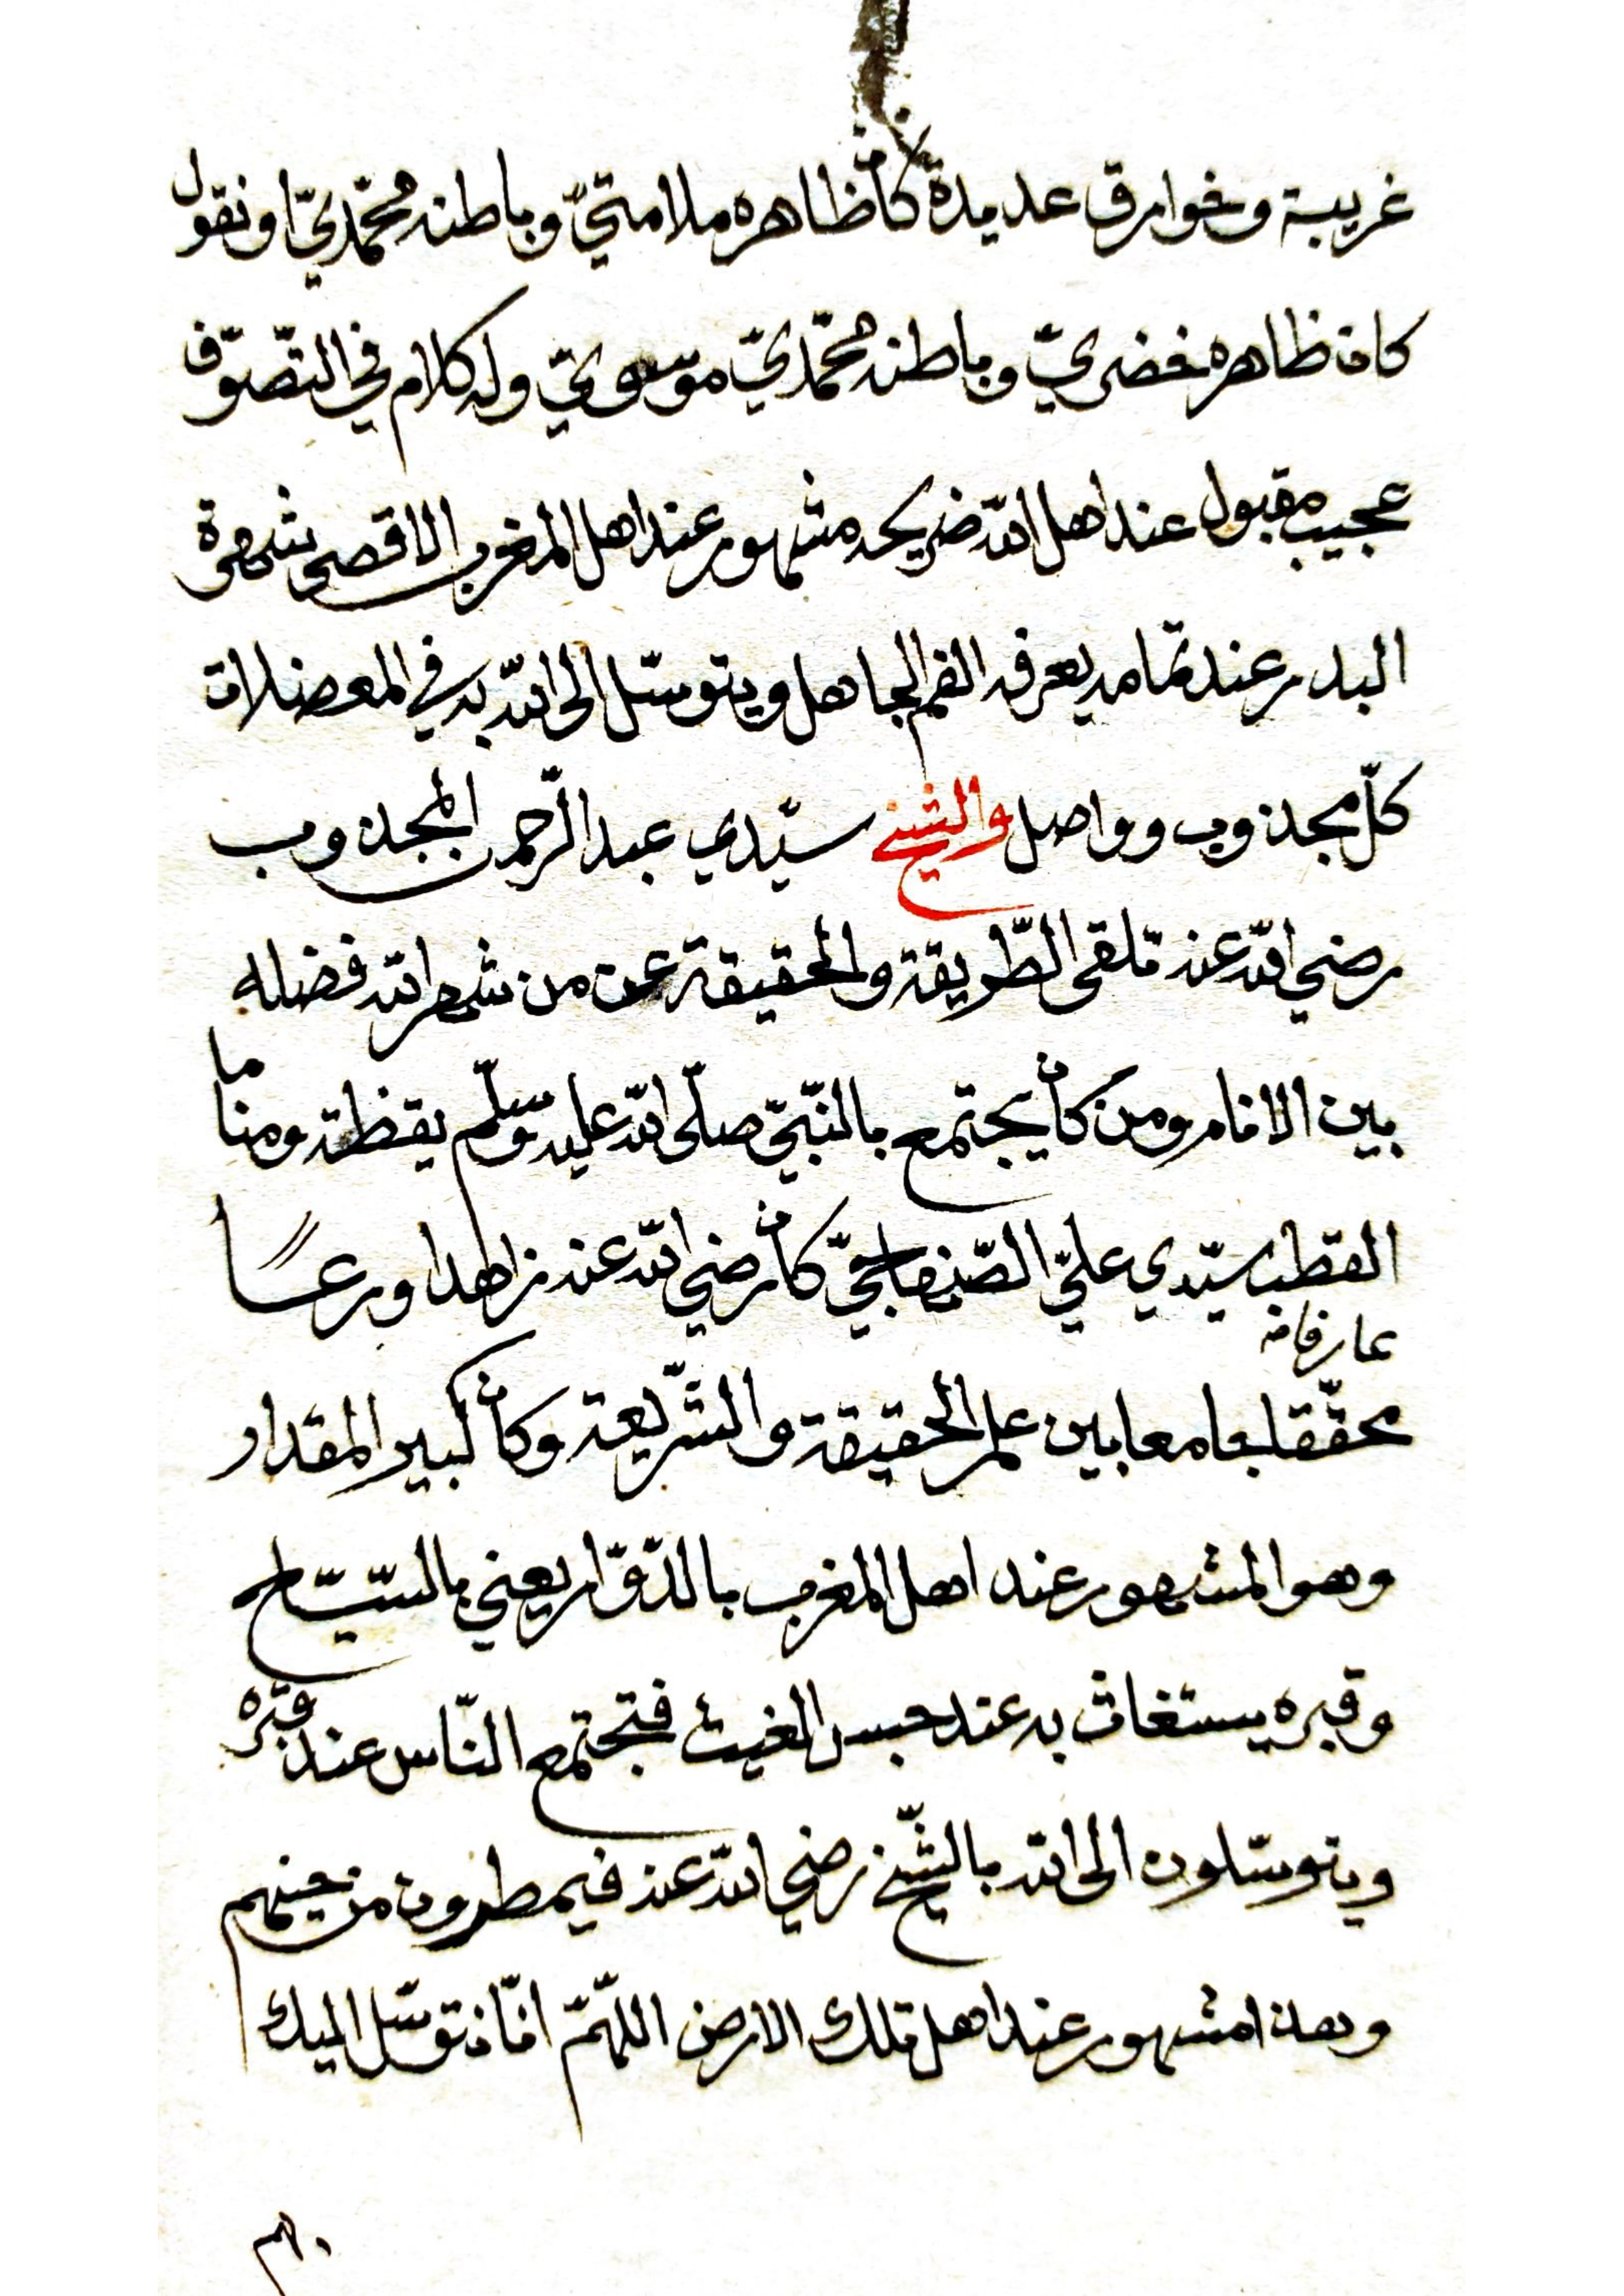 غريبة وخوارق عديدة كان ظاهره ملامتيّ وباطنه محمّديّ او نقول
كان ظاهره خضريّ وباطنه محمّديّ موسويّ وله كلام في التصّوّف
عجيب مقبول عند اهل الله ضريحه مشهور عند اهل المغرب الاقصى شهرة
البدر عند تمامه يعرفه الفم الجاهل ويتوسّل الى الله به في المعضلات
كلّ مجذوب وواصل والشيخ سيّدي عبد الرّحمن المجذوب
رضي الله عنه تلقى الطّريقة والحقيقة عن من شهر الله فضله
بين الانام ومن كان يجتمع بالنّبيّ صلّى الله عليه وسلّم يقظة ومناما
القطب سيّدي عليّ الصّنهاجيّ كان رضي الله عنه زاهدا ورعًا
عارفا
محقّقا جامعا بين علم الحقيقة والشّريعة وكان كبير المقدار
وهو المشهور عند اهل المغرب بالدّوّار يعني بالسّيّاح
وقبره يستغاث به عند حبس الغيث فتجتمع النّاس عند قبره
ويتوسّلون الى الله بالشّيخ رضي الله عنه فيمطرون من حينهم
وهذا مشهور عند اهل تلك الارض اللهمّ انّا نتوسّل اليك
بهم